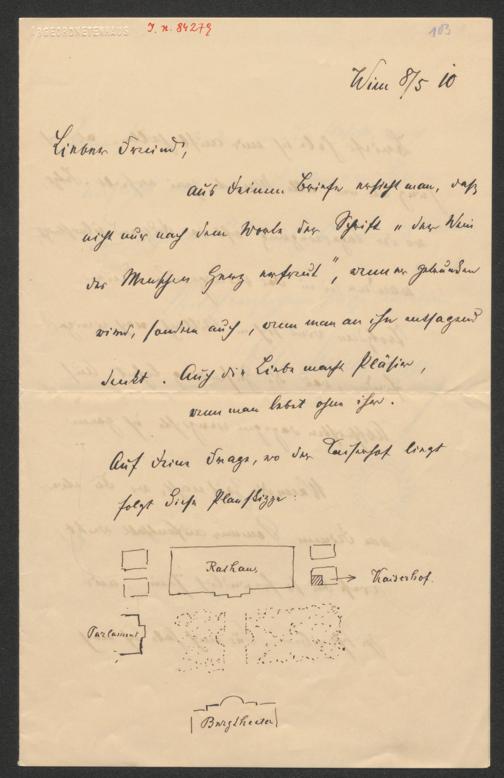 ABGEORDNETENHAUS
J. N. 84279
103
Wien 8/5 10
Lieber Freund,
aus deinem Briefe ersieht man, daß
nicht nur nach dem Worte der Schrift „der Wein
des Menschen Herz erfreut", wenn er getrunken
wird, sondern auch, wenn man an ihn entsagend
denkt. Auch die Liebe macht Pläsier,
wenn man lebet ohne ihr.
Auf deine Frage, wo der Kaiserhof liegt
folgt diese Planskizze:
Rathaus
Kaiserhof.
Parlament
Burgtheater